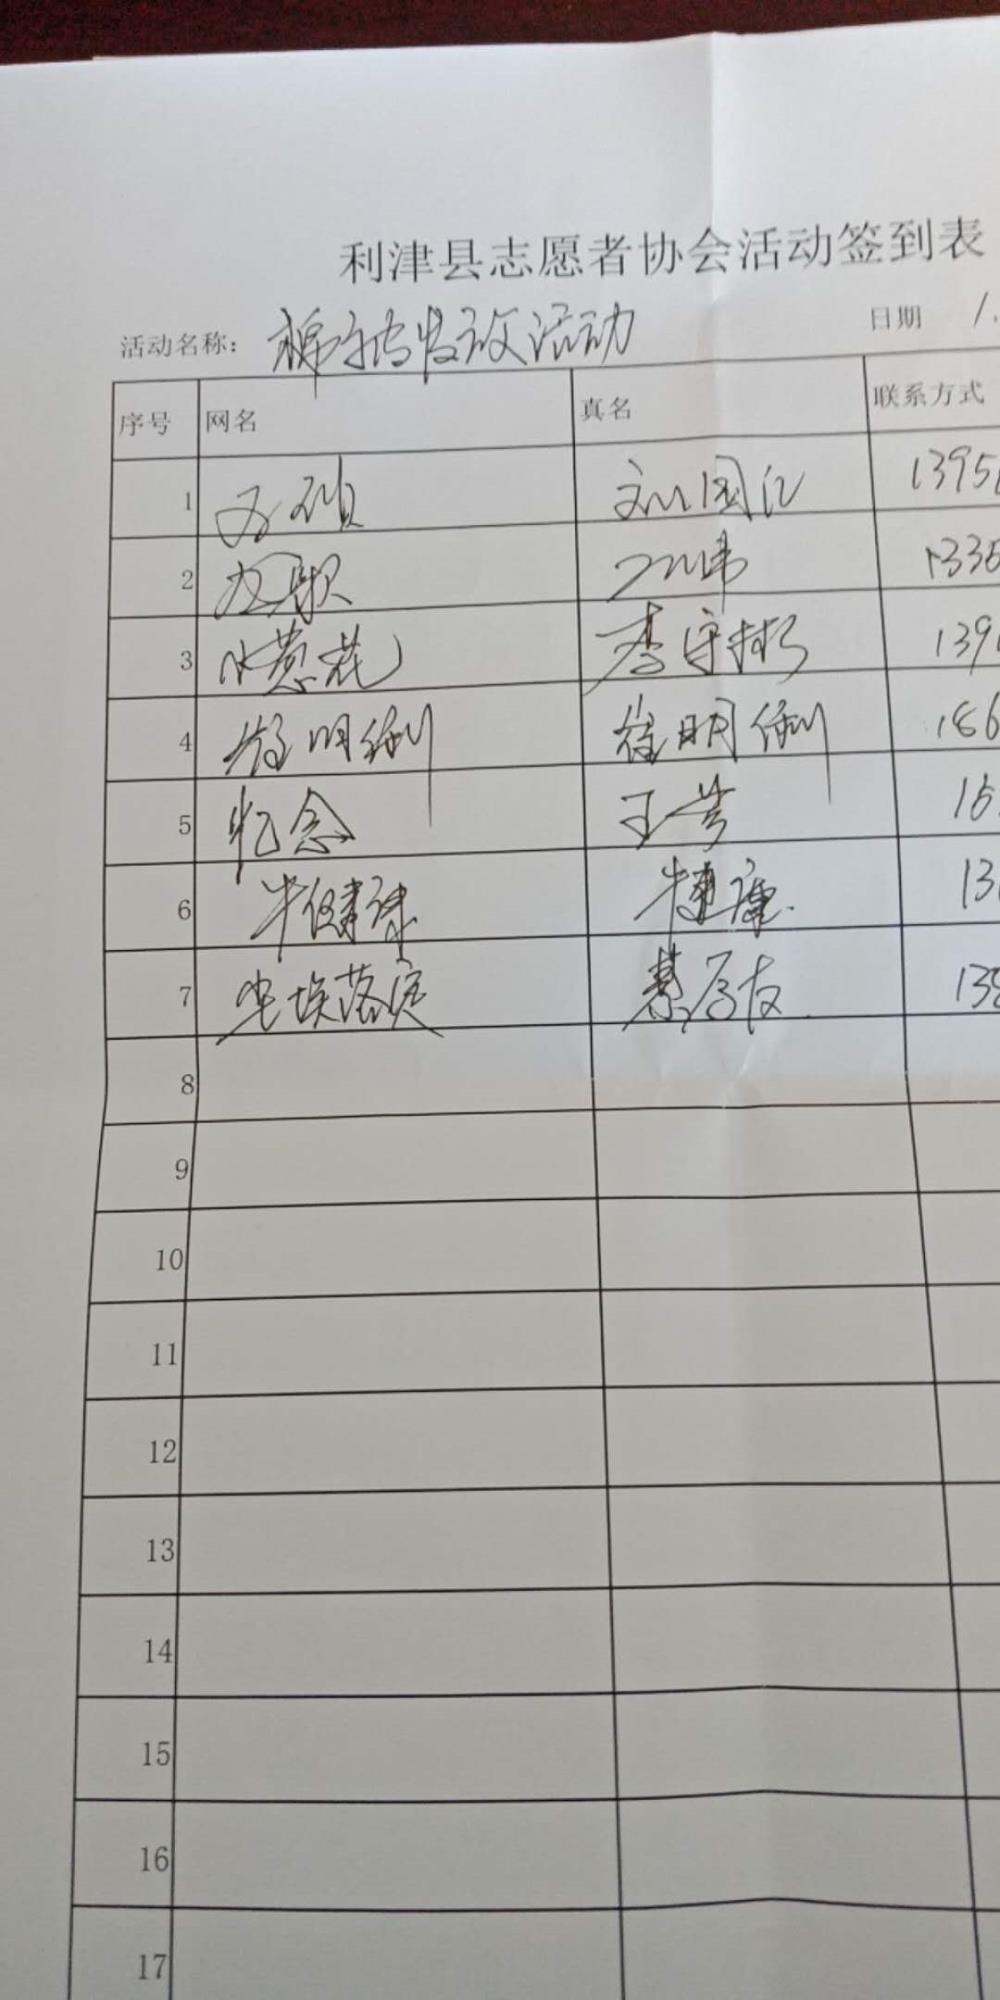 利津县志愿者协会活动签到表
活动名称: 发放活动 日期 1.
序号 网名 真名 联系方式
1 刘国江 1395
2 1335
3 水葱花 李守彬 139
4 徐明俐 徐明俐 186
5 忆念 王芳 15
6 牛健康 牛健康 13
7 尘埃落定 綦序友 139
8
9
10
11
12
13
14
15
16
17